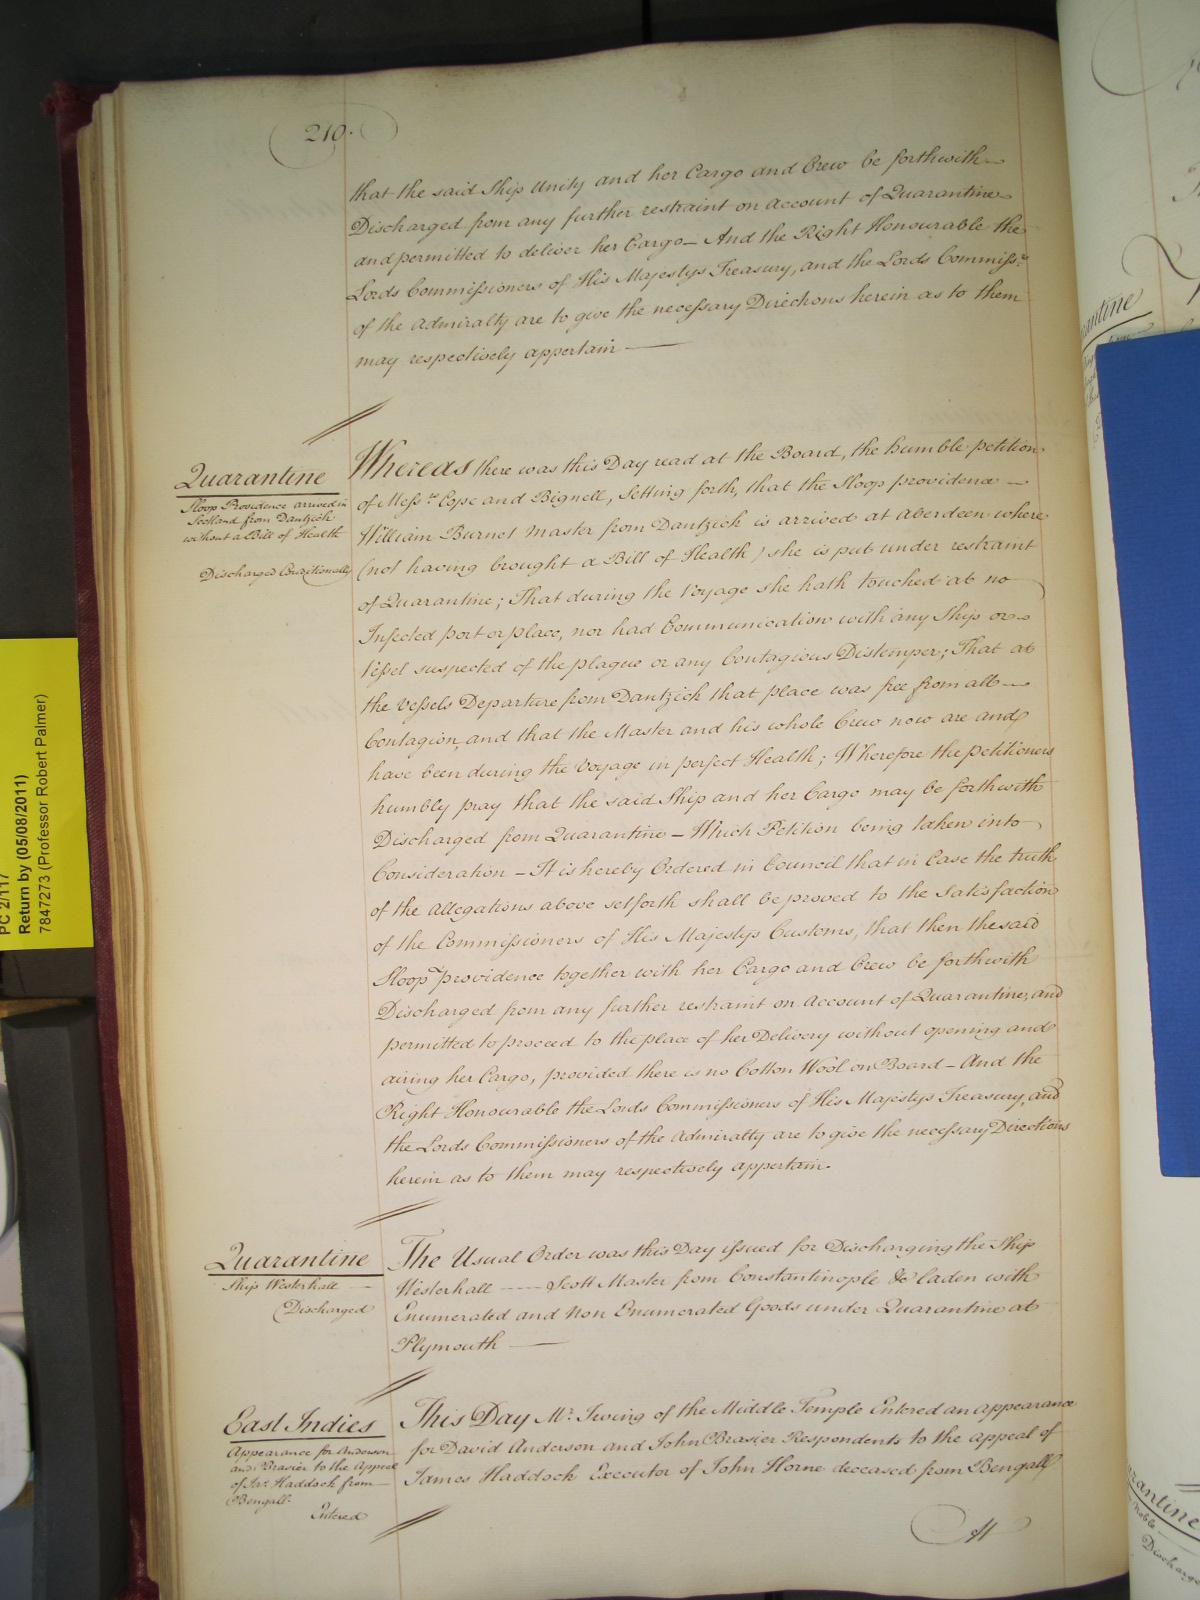 210.
that the said Ship Unity and her Cargo and Crew be forthwith
Discharged from any further restraint on Account of Quarantine
and permitted to deliver her Cargo – And the Right Honourable the
Lords Commissioners of His Majestys Treasury, and the Lords Commissrs.
of the Admiralty are to give the necessary Directions herein as to them
may respectively appertain —
Quarantine
Sloop Providence arrived in
Scotland from Dantzick
without a Bill of Health
Discharged Conditionally
Whereas there was this Day read at the Board, the humble petition
of Messrs. Cope and Bignell, Setting forth, that the Sloop providence –
William Burnet Master from Dantzick is arrived at Aberdeen where
(not having brought a Bill of Health) she is put under restraint
of Quarantine; That during the Voyage she hath touched at no
Infected port or place, nor had Communication with any Ship or
Vessel suspected of the plague or any Contagious Distemper; That at
the Vessels Departure from Dantzick that place was free from all
Contagion, and that the Master and his whole Crew now are and
have been during the Voyage in perfect Health; Wherefore the petitioners
humbly pray that the said Ship and her Cargo may be forthwith
Discharged from Quarantine – Which Petition being taken into
Consideration – It is hereby Ordered in Council that in Case the truth
of the Allegations above setforth shall be proved to the Satisfaction
of the Commissioners of His Majestys Customs, that then the said
Sloop providence together with her Cargo and Crew be forthwith
Discharged from any further restraint on Account of Quarantine, and
permitted to proceed to the place of her Delivery without opening and
airing her Cargo, provided there is no Cotton Wool on Board – And the
Right Honourable the Lords Commissioners of His Majestys Treasury, and
the Lords Commissioners of the Admiralty are to give the necessary Directions
herein as to them may respectively appertain.
Quarantine
Ship Westerhall
Discharged
The Usual Order was this Day issued for Discharging the Ship
Westerhall ---- Scott Master from Constantinople &c laden with
Enumerated and Non Enumerated Goods under Quarantine at
Plymouth —
East Indies
Appearance for Anderson
and Brasier to the Appeal
of Jas. Haddock from
Bengall.
Entered
This Day Mr. Irving of the Middle Temple Entered an appearance
for David Anderson and John Brasier Respondents to the Appeal of
James Haddock Executor of John Horne deceased from Bengall
PC 2/117
Return by (05/08/2011)
7847273 (Professor Robert Palmer)
antine
arantine
Noble
Discharge